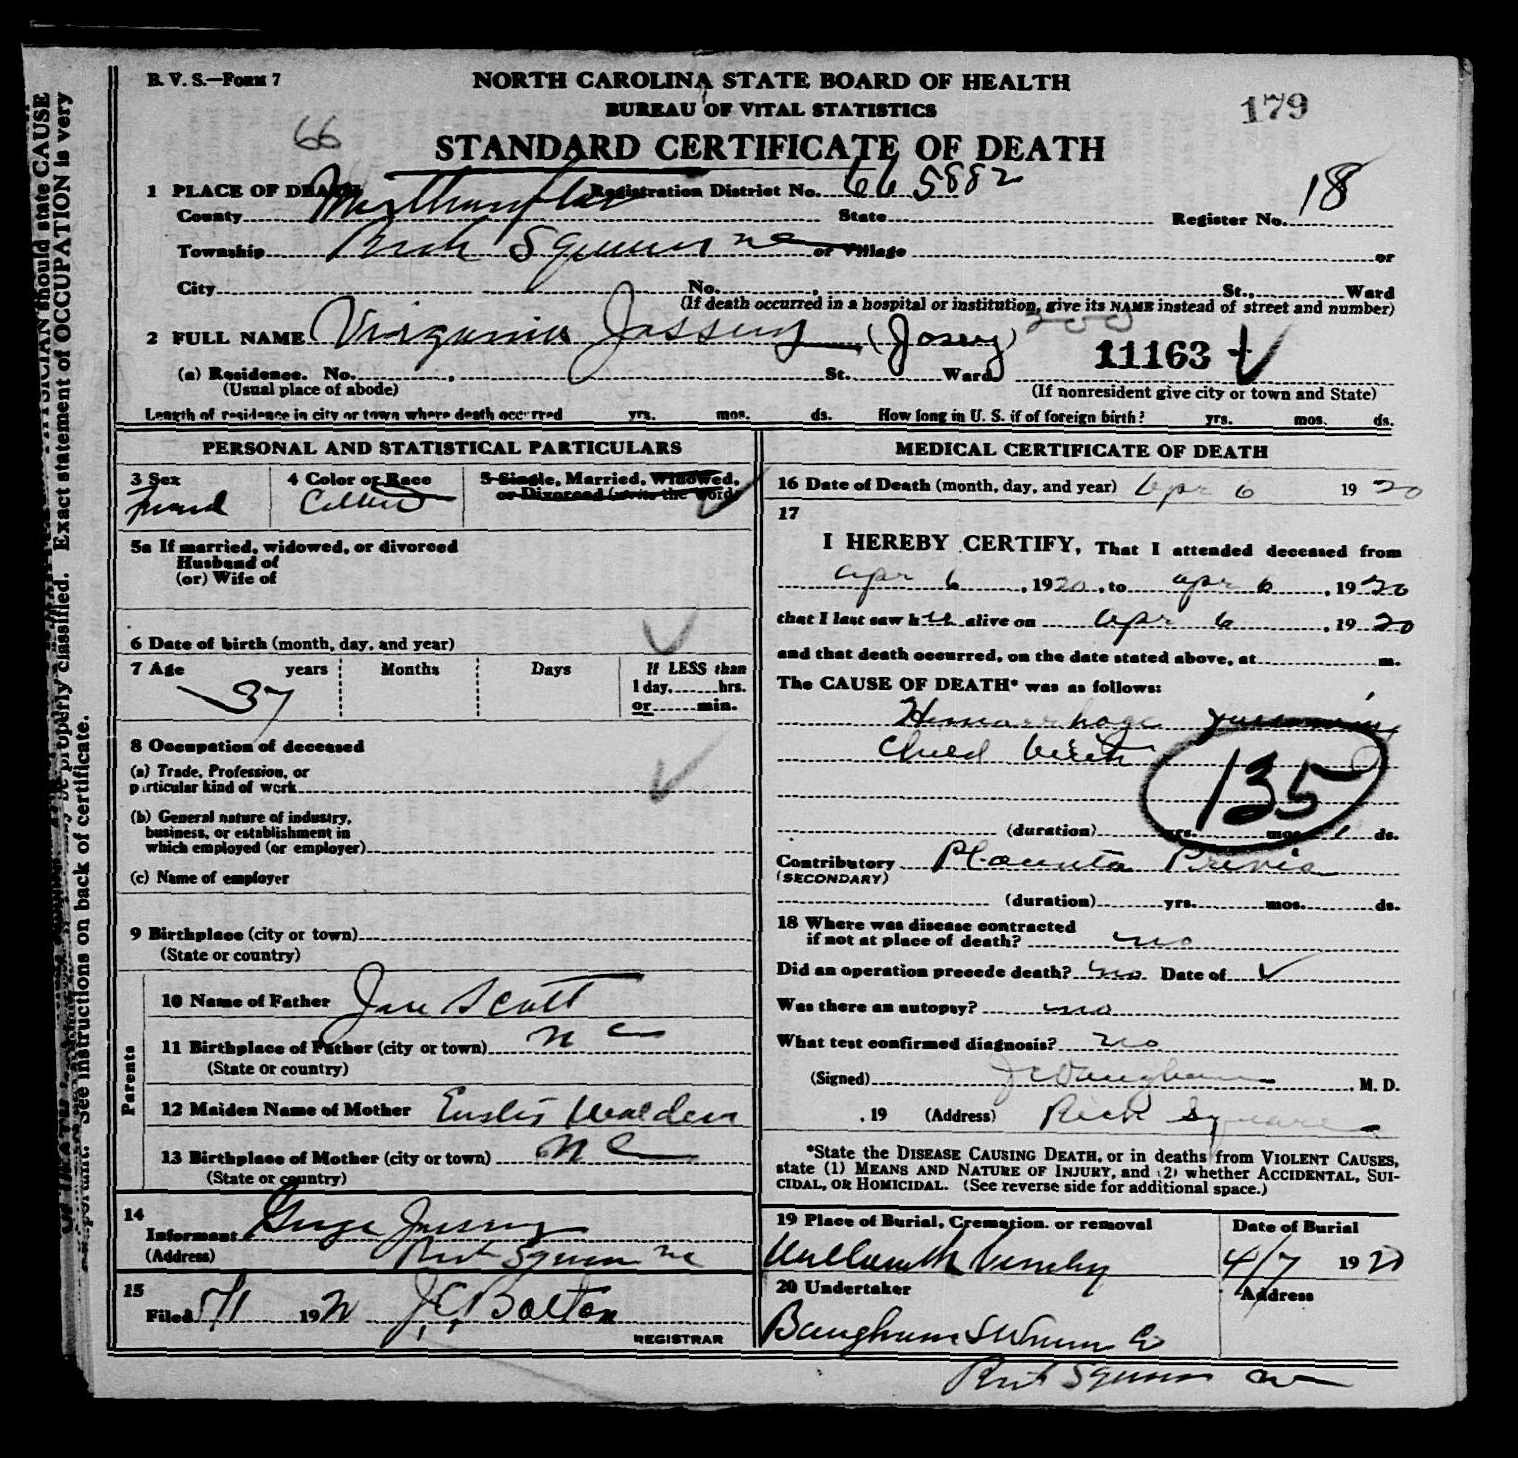 B. V. S.—Form 7
NORTH CAROLINA STATE BOARD OF HEALTH
BUREAU OF VITAL STATISTICS
179
66
STANDARD CERTIFICATE OF DEATH
1 PLACE OF DEATH Registration District No. 66 5882
County Northampton State Register No. 18
Township Rich Square NC or Village or
City No. , St., Ward
(If death occurred in a hospital or institution, give its NAME instead of street and number)
200
2 FULL NAME Virginia Jossey (Josey) 11163
(a) Residence. No. , St. Ward
(Usual place of abode) (If nonresident give city or town and State)
Length of residence in city or town where death occurred yrs. mos. ds. How long in U. S. if of foreign birth? yrs. mos. ds.
PERSONAL AND STATISTICAL PARTICULARS
3 Sex 4 Color or Race 5 Single, Married, Widowed,
or Divorced (write the word)
5a If married, widowed, or divorced
Husband of
(or) Wife of
6 Date of birth (month, day, and year)
7 Age years Months Days If LESS than
37 1 day, hrs.
or min.
8 Occupation of deceased
(a) Trade, Profession, or
particular kind of work
(b) General nature of industry,
business, or establishment in
which employed (or employer)
(c) Name of employer
9 Birthplace (city or town)
(State or country)
Parents
10 Name of Father Scott
11 Birthplace of Father (city or town) N C
(State or country)
12 Maiden Name of Mother Walden
13 Birthplace of Mother (city or town) N C
(State or country)
14
Informant George Jossey
(Address) Rich Square NC
15
Filed 5/1 1920 J. C. Bolton
REGISTRAR
MEDICAL CERTIFICATE OF DEATH
16 Date of Death (month, day, and year) Apr 6 1920
17
I HEREBY CERTIFY, That I attended deceased from
apr 6 , 1920, to apr 6 , 1920
that I last saw her alive on apr 6 , 1920
and that death occurred, on the date stated above, at m.
The CAUSE OF DEATH* was as follows:
Hemorrhage
Child birth
135
(duration) yrs. mos. 1 ds.
Contributory Placenta Previa
(SECONDARY)
(duration) yrs. mos. ds.
18 Where was disease contracted
if not at place of death? no
Did an operation precede death? no Date of
Was there an autopsy? no
What test confirmed diagnosis? no
(Signed) , M. D.
, 19 (Address) Rich Square
*State the DISEASE CAUSING DEATH, or in deaths from VIOLENT CAUSES,
state (1) MEANS AND NATURE OF INJURY, and (2) whether ACCIDENTAL, SUI-
CIDAL, OR HOMICIDAL. (See reverse side for additional space.)
19 Place of Burial, Cremation, or removal Date of Burial
4/7 1920
20 Undertaker Address
Rich Square NC
PHYSICIAN should state CAUSE
Exact statement of OCCUPATION is very
be properly classified.
See instructions on back of certificate.